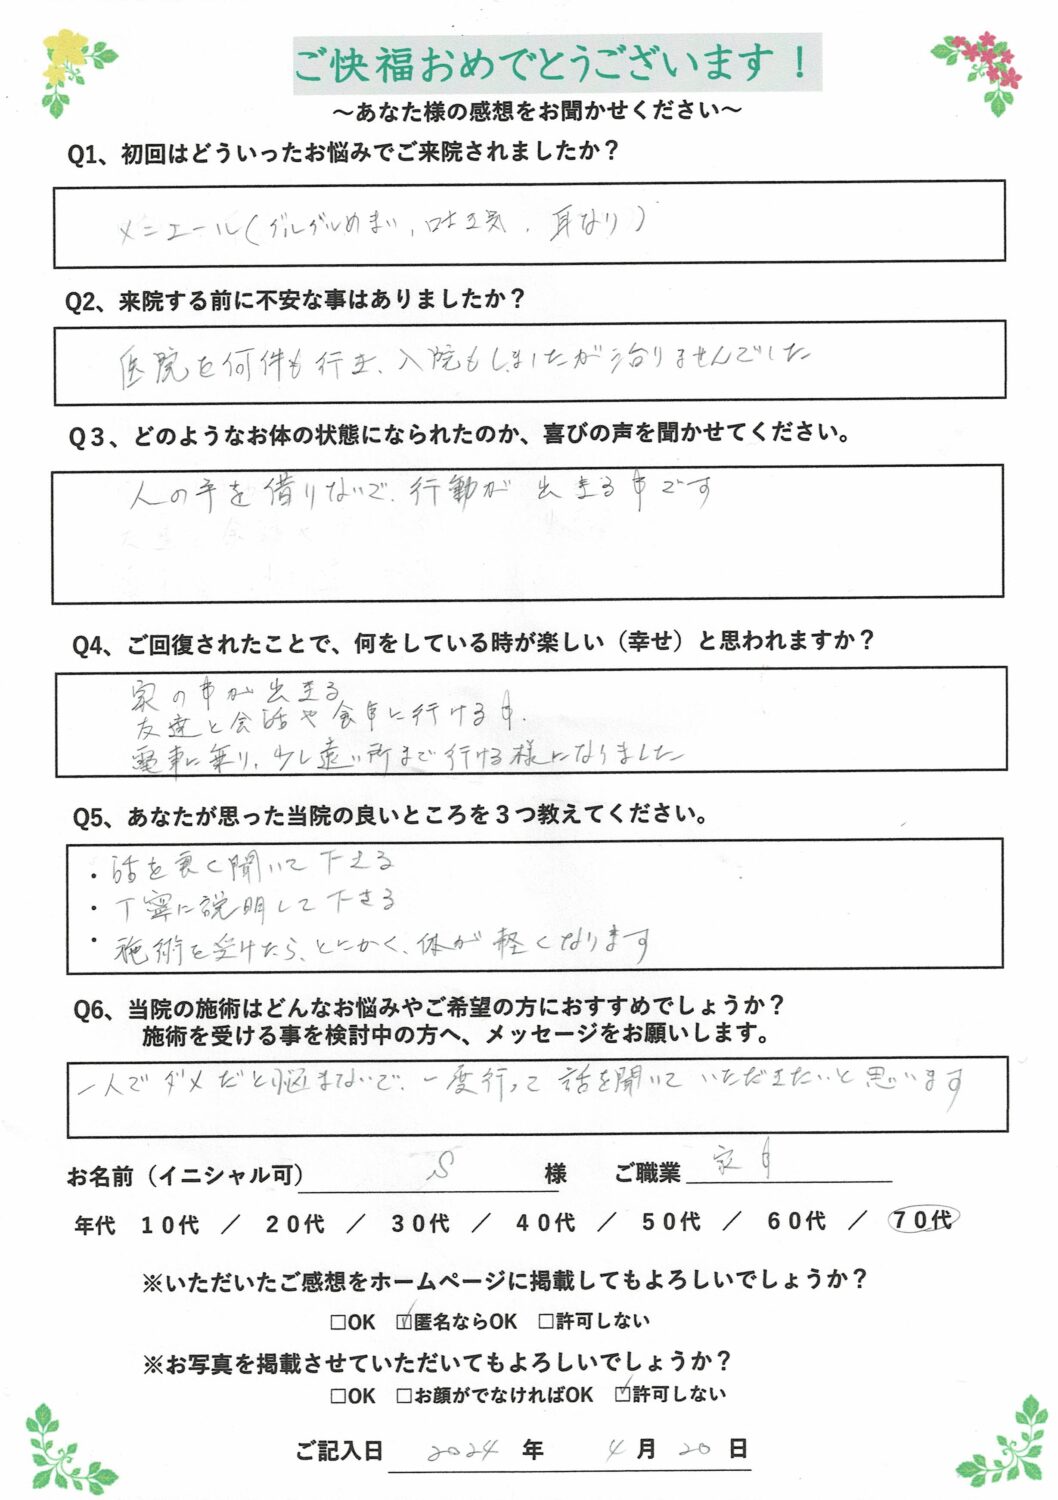 ご快福おめでとうございます！
～あなた様の感想をお聞かせください～
Q1、初回はどういったお悩みでご来院されましたか？
メニエール(グルグルめまい，吐き気，耳なり)
Q2、来院する前に不安な事はありましたか？
医院を何件も行き、入院もしましたが治りませんでした
Q３、どのようなお体の状態になられたのか、喜びの声を聞かせてください。
人の手を借りないで、行動が出きる事です
Q4、ご回復されたことで、何をしている時が楽しい（幸せ）と思われますか？
家の事が出きる
友達と会話や食事に行ける事.
電車に乗り、少し遠い所まで行ける様になりました
Q5、あなたが思った当院の良いところを３つ教えてください。
・話を良く聞いて下さる
・丁寧に説明して下さる
・施術を受けたら、とにかく、体が軽くなります
Q6、当院の施術はどんなお悩みやご希望の方におすすめでしょうか？
施術を受ける事を検討中の方へ、メッセージをお願いします。
一人でダメだと悩まないで、一度行って話を聞いていただきたいと思います
お名前（イニシャル可） S 様 ご職業 家事
年代 １０代 ／ ２０代 ／ ３０代 ／ ４０代 ／ ５０代 ／ ６０代 ／ ７０代
※いただいたご感想をホームページに掲載してもよろしいでしょうか？
□OK ☑匿名ならOK □許可しない
※お写真を掲載させていただいてもよろしいでしょうか？
□OK □お顔がでなければOK ☑許可しない
ご記入日 2024 年 4 月 20 日